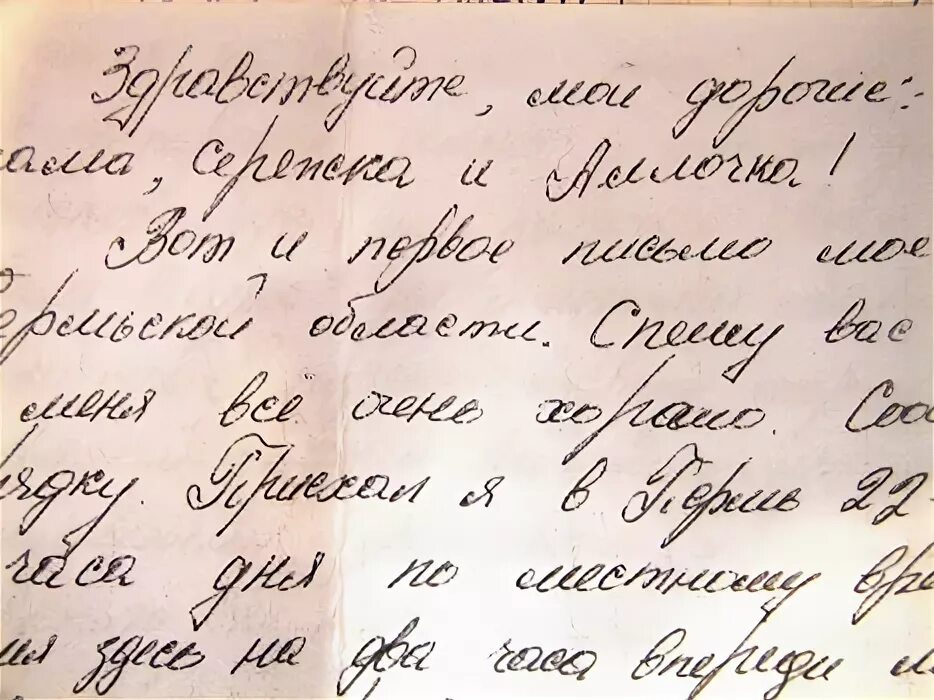 Здравствуйте, мои дорогие:
ама, Сережка и Аллочка!
Вот и первое письмо мое
ермьской области. Спешу вас
меня всё очень хорошо. Соо
рядку. Приехал я в Пермь 22-
часа дня по местному вре
мя здесь на два часа впереди м